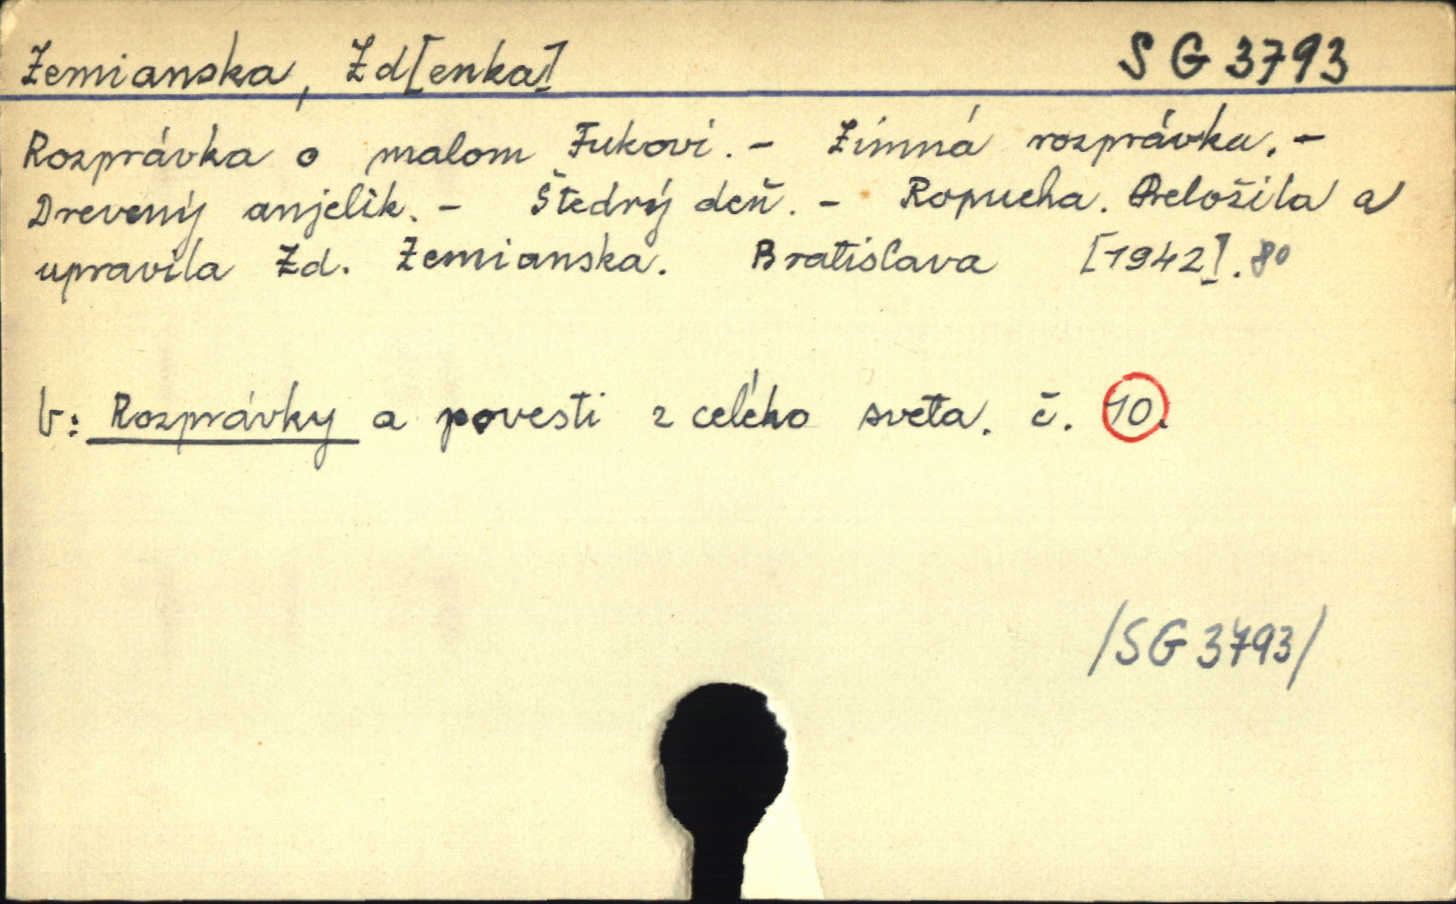 Zemianska, Zd[enka] SG 3793
Rozprávka o malom Fukovi. - Zimná rozprávka. -
Drevený anjelik. - Štedrý deň. - Ropucha. Preložila a
upravila Zd. Zemianska. Bratislava [1942]. 8°
v: Rozprávky a povesti z celého sveta. č. 10.
/SG 3793/